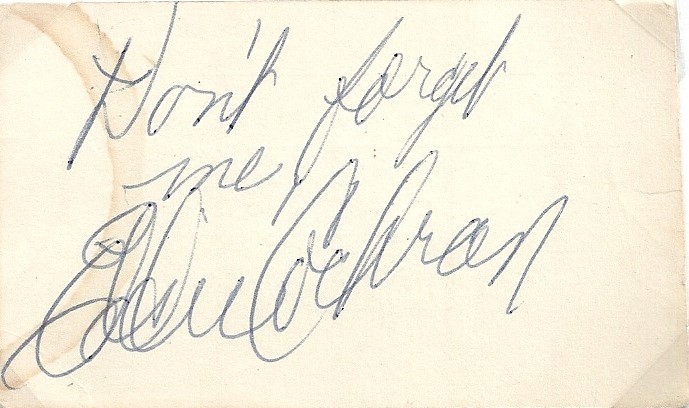 Don't forget
me
Eddie Cochran